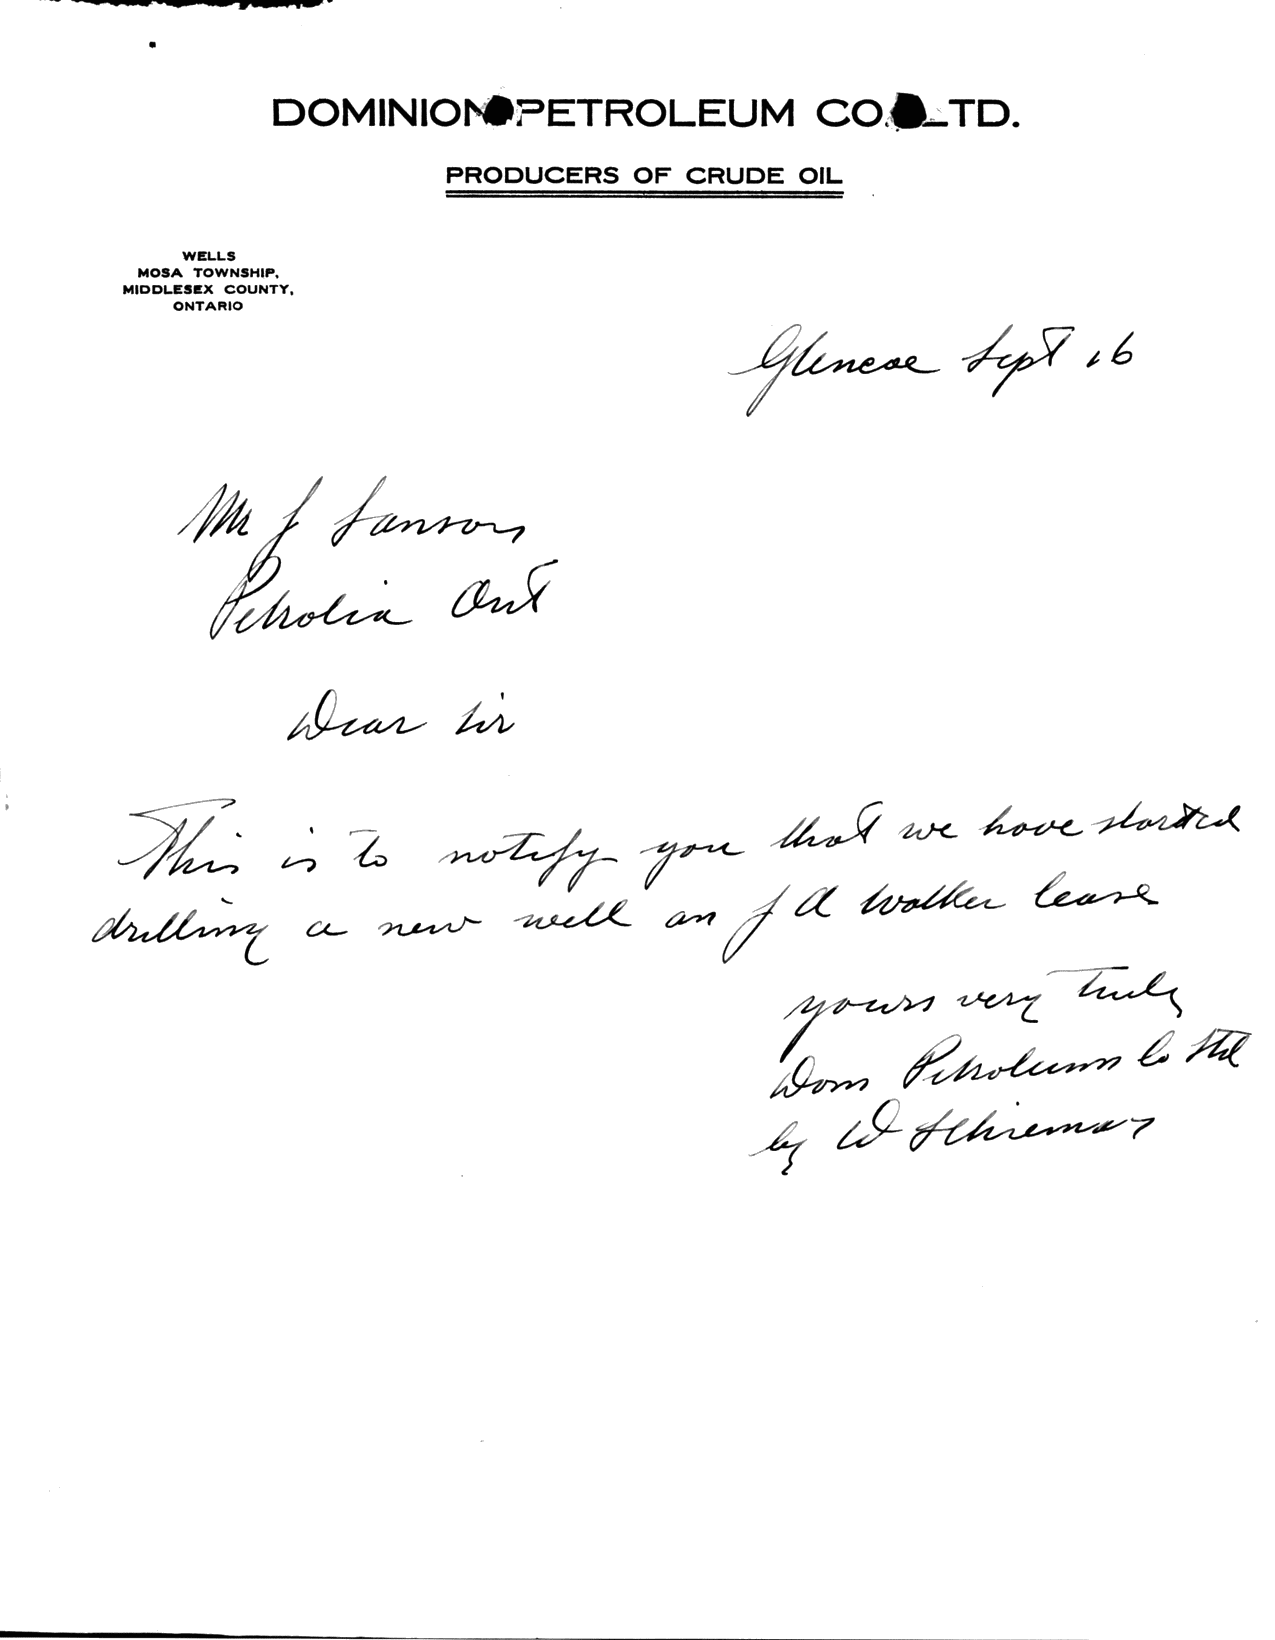 DOMINION PETROLEUM CO. LTD.
PRODUCERS OF CRUDE OIL
WELLS
MOSA TOWNSHIP,
MIDDLESEX COUNTY,
ONTARIO
Glencoe Sept 16
Mr J Sanson
Petrolia Ont
Dear Sir
This is to notify you that we have started
drilling a new well on J A Walker lease
yours very truly
Dom Petroleum Co Ltd
by W